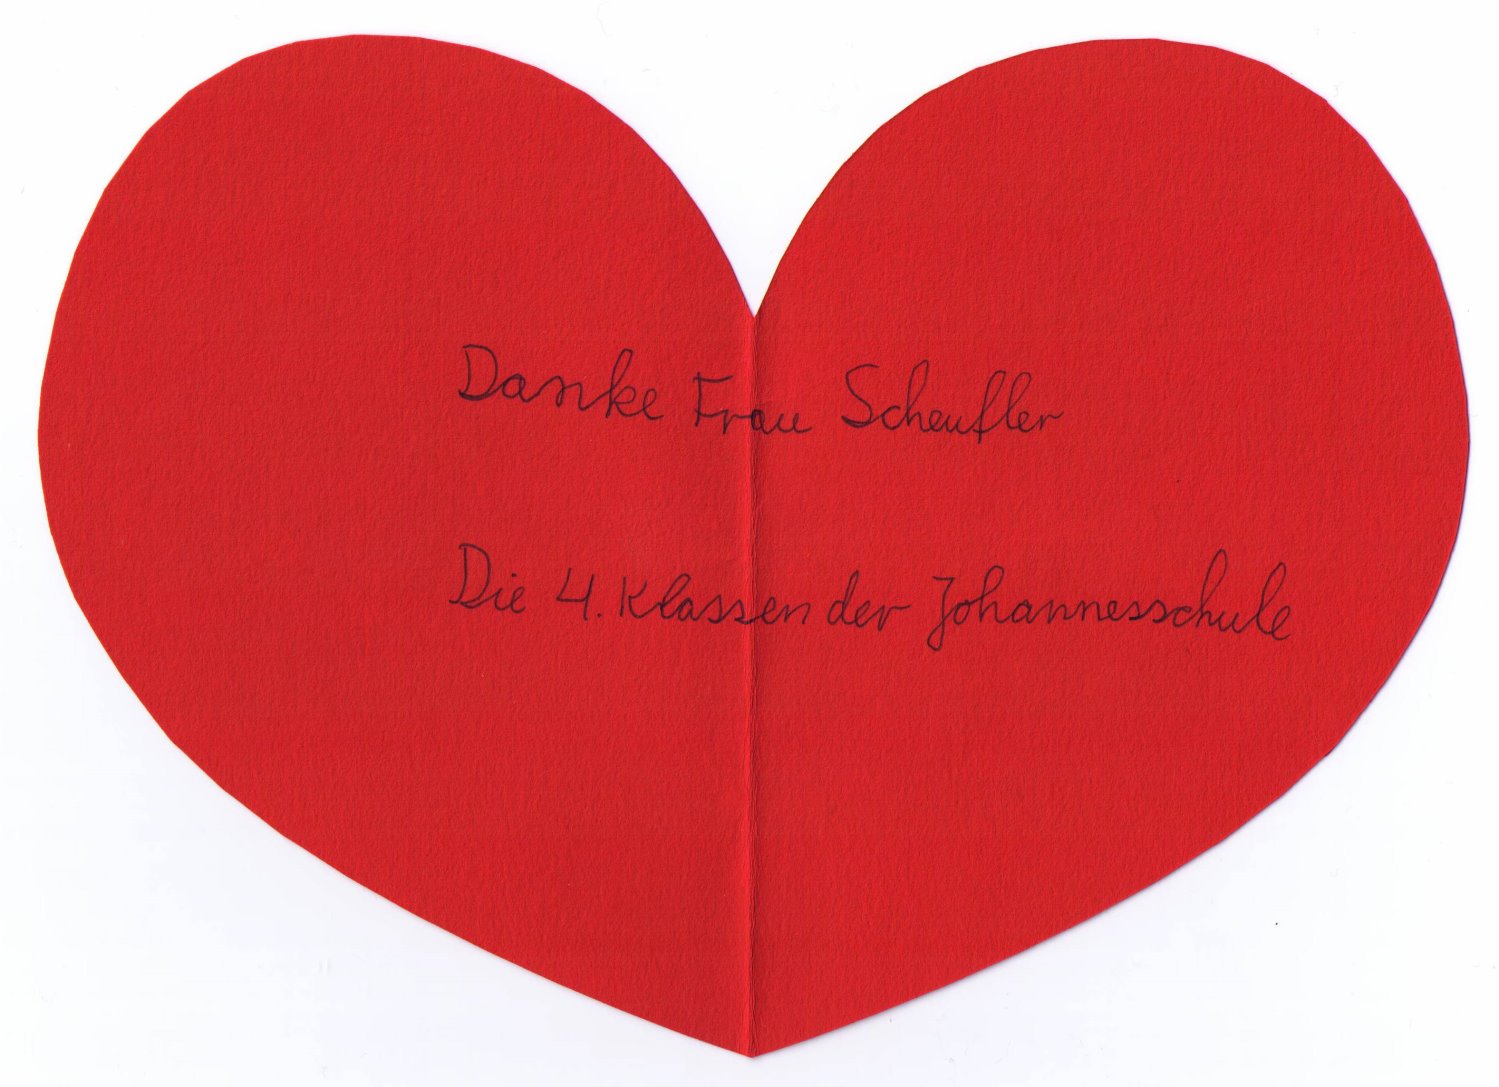 Danke Frau Scheufler
Die 4. Klassen der Johannesschule